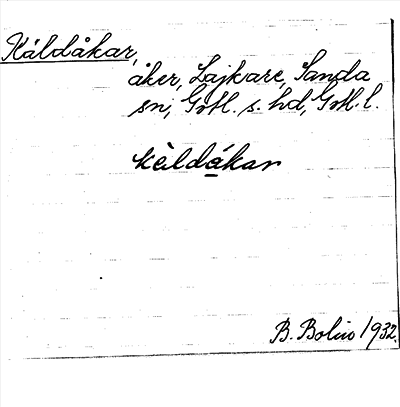 Käldåkar,
åker, Lajkare, Sanda
sn, Gotl. s. hd, Gotl. l.
kèldåkar
B. Bolin 1932.